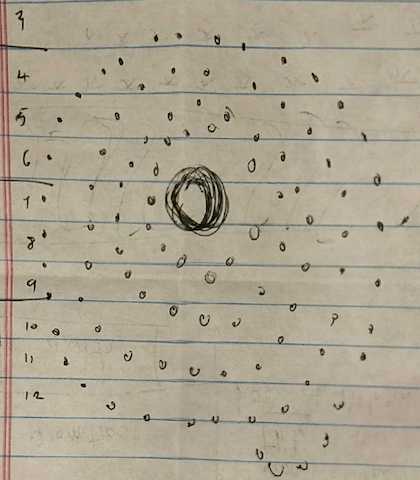 3
4
5
6
7
8
9
10
11
12